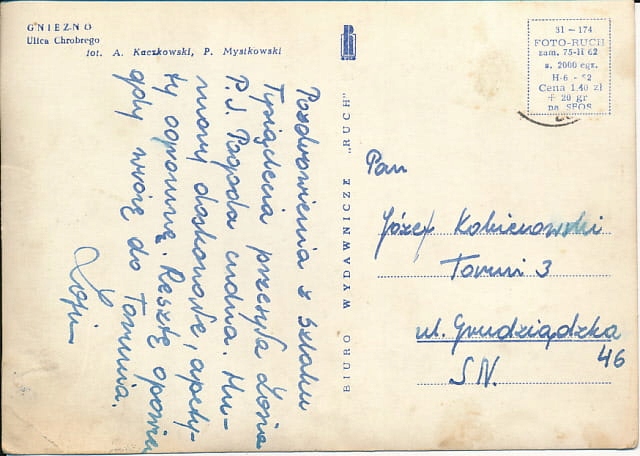 GNIEZNO
Ulica Chrobrego
fot. A. Kaczkowski, P. Mystkowski
Pozdrowienia z Szlaku
Tysiąclecia przesyła Zosia
P.S. Pogoda cudna. Hu-
mory doskonałe, apety-
ty ogromne. Resztę opowiem
gdy wrócę do Torunia.
Zosia
BIURO WYDAWNICZE „RUCH"
31 — 174
FOTO-RUCH
zam. 75-II 62
n. 2000 egz.
H-6 - 52
Cena 1,40 zł
+ 20 gr
na SFOS
Pan
Józef Kobierowski
Toruń 3
ul. Grudziądzka
46
SN.